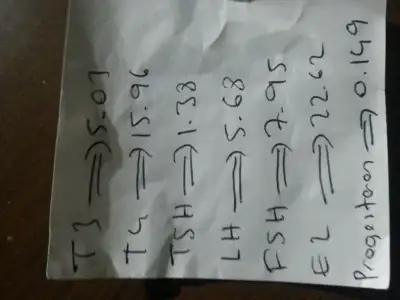 T3 ⇒ 5.01
T4 ⇒ 15.96
TSH ⇒ 1.38
LH ⇒ 5.68
FSH ⇒ 7.95
E2 ⇒ 22.62
Progeitoon ⇒ 0.149